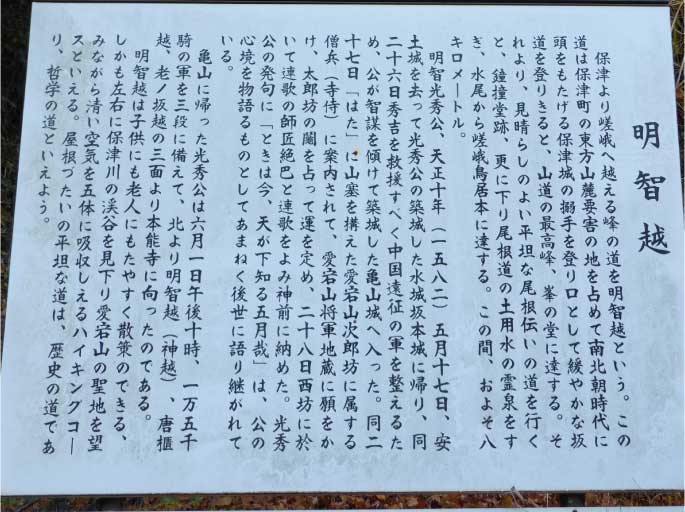 明智越
保津より嵯峨へ越える峰の道を明智越という。この
道は保津町の東方山麓要害の地を占めて南北朝時代に
頭をもたげる保津城の搦手を登り口として緩やかな坂
道を登りきると、山道の最高峰、峯の堂に達する。そ
れより、見晴らしのよい平坦な尾根伝いの道を行く
と、鐘撞堂跡、更に下り尾根道の土用水の霊泉をす
ぎ、水尾から嵯峨鳥居本に達する。この間、およそ八
キロメートル。
明智光秀公、天正十年（一五八二）五月十七日、安
土城を去って光秀公の築城した水城坂本城に帰り、同
二十六日秀吉を救援すべく中国遠征の軍を整えるた
め、公が智謀を傾けて築城した亀山城へ入った。同二
十七日「はた」に山塞を構えた愛宕山次郎坊に属する
僧兵（寺侍）に案内されて、愛宕山将軍地蔵に願をか
け、太郎坊の䦰を占って運を定め、二十八日西坊に於
いて連歌の師匠絶巴と連歌をよみ神前に納めた。光秀
公の発句に「ときは今、天が下知る五月哉」は、公の
心境を物語るものとしてあまねく後世に語り継がれて
いる。
亀山に帰った光秀公は六月一日午後十時、一万五千
騎の軍を三段に備えて、北より明智越（神越）、唐櫃
越、老ノ坂越の三面より本能寺に向ったのである。
明智越は子供にも老人にもたやすく散策のできる、
しかも左右に保津川の渓谷を見下り愛宕山の聖地を望
みながら清い空気を五体に吸収しえるハイキングコー
スといえる。屋根づたいの平坦な道は、歴史の道であ
り、哲学の道といえよう。